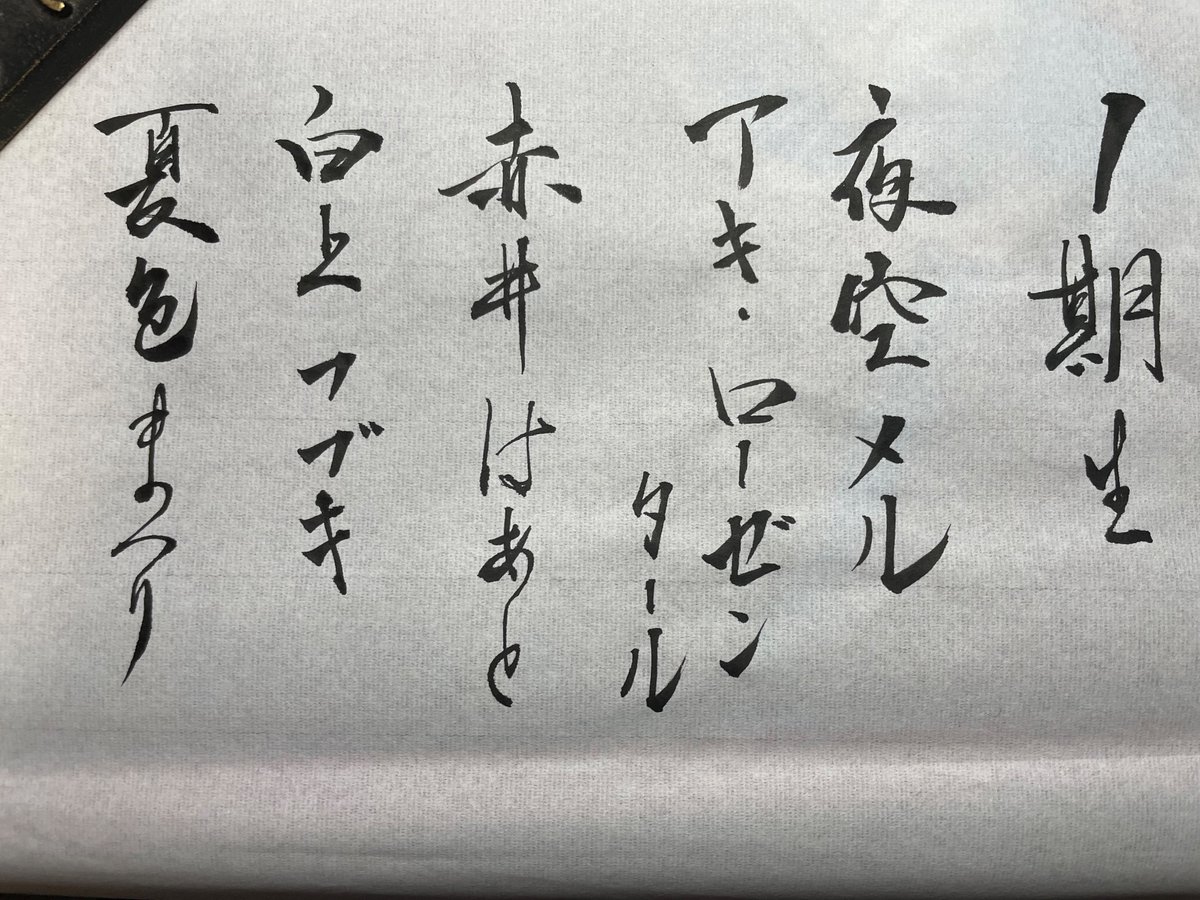 1期生
夜空メル
アキ・ローゼン
タール
赤井はあと
白上フブキ
夏色まつり